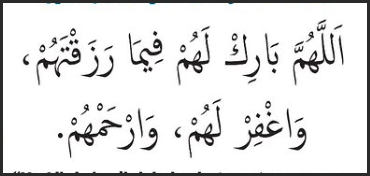 اَللَّهُمَّ بَارِكْ لَهُمْ فِيمَا رَزَقْتَهُمْ،
وَاغْفِرْ لَهُمْ، وَارْحَمْهُمْ.